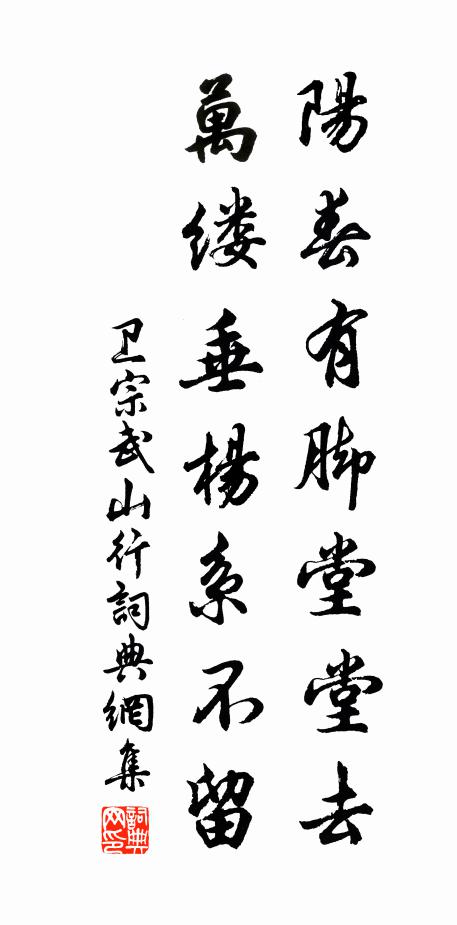 陽春有脚堂堂去
萬缕垂楊系不留
卫宗武山行詞典網集
詞典网印